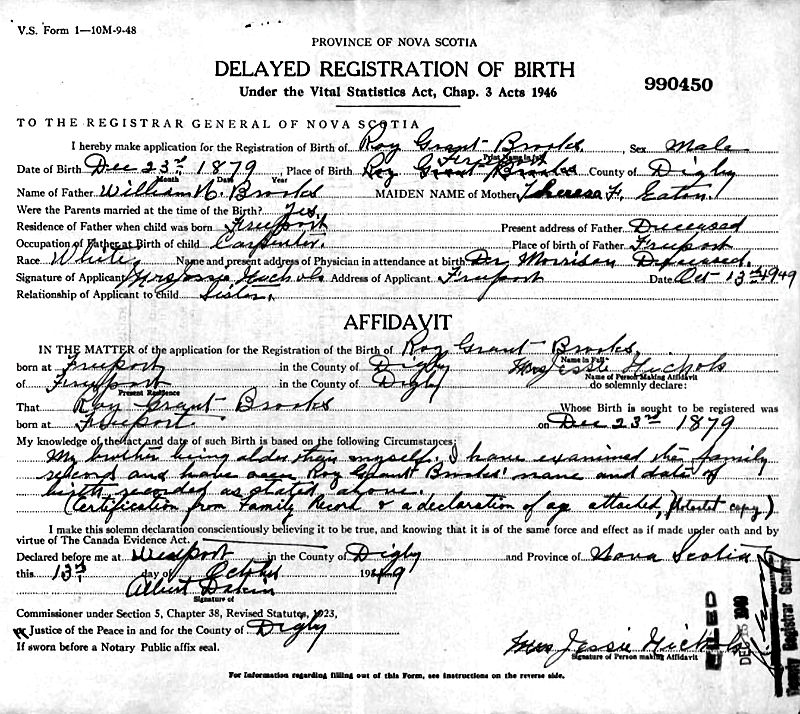 V.S. Form 1—10M-9-48
PROVINCE OF NOVA SCOTIA
DELAYED REGISTRATION OF BIRTH
990450
Under the Vital Statistics Act, Chap. 3 Acts 1946
TO THE REGISTRAR GENERAL OF NOVA SCOTIA
I hereby make application for the Registration of Birth of Roy Grant Brooks Sex Male
Print Name in full
Freeport
Date of Birth Dec 23rd 1879, Place of Birth Roy Grant Brooks County of Digby
Month Date Year
Name of Father William H. Brooks MAIDEN NAME of Mother Theresa F. Eaton
Were the Parents married at the time of the Birth? Yes.
Residence of Father when child was born Freeport Present address of Father Deceased
Occupation of Father at Birth of child Carpenter. Place of birth of Father Freeport
Race White Name and present address of Physician in attendance at birth Dr Morrison Deceased.
Signature of Applicant Mrs Jessie Nichols Address of Applicant Freeport Date Oct 13th 1949
Relationship of Applicant to child Sister.
AFFIDAVIT
IN THE MATTER of the application for the Registration of the Birth of Roy Grant Brooks
Name in Full
born at Freeport in the County of Digby Mrs Jessie Nichols
Name of Person Making Affidavit
of Freeport in the County of Digby do solemnly declare:
Present Residence
That Roy Grant Brooks Whose Birth is sought to be registered was
born at Freeport. on Dec 23rd 1879
My knowledge of the fact and date of such Birth is based on the following Circumstances:
My brother being older than myself. I have examined the family
record and have seen Roy Grant Brooks' name and date of
birth recorded as stated above.
(Certification from Family Record & a declaration of age attached, (photostat copy.)
I make this solemn declaration conscientiously believing it to be true, and knowing that it is of the same force and effect as if made under oath and by
virtue of The Canada Evidence Act.
Declared before me at Westport in the County of Digby and Province of Nova Scotia
this 13th day of October 1949
Albert Dakin
Signature of
Commissioner under Section 5, Chapter 38, Revised Statutes, 1923,
Justice of the Peace in and for the County of Digby
If sworn before a Notary Public affix seal.
Mrs Jessie Nichols
Signature of Person making Affidavit
FILED
DEC 1949
Deputy Registrar General
For Information regarding filling out of this Form, see instructions on the reverse side.